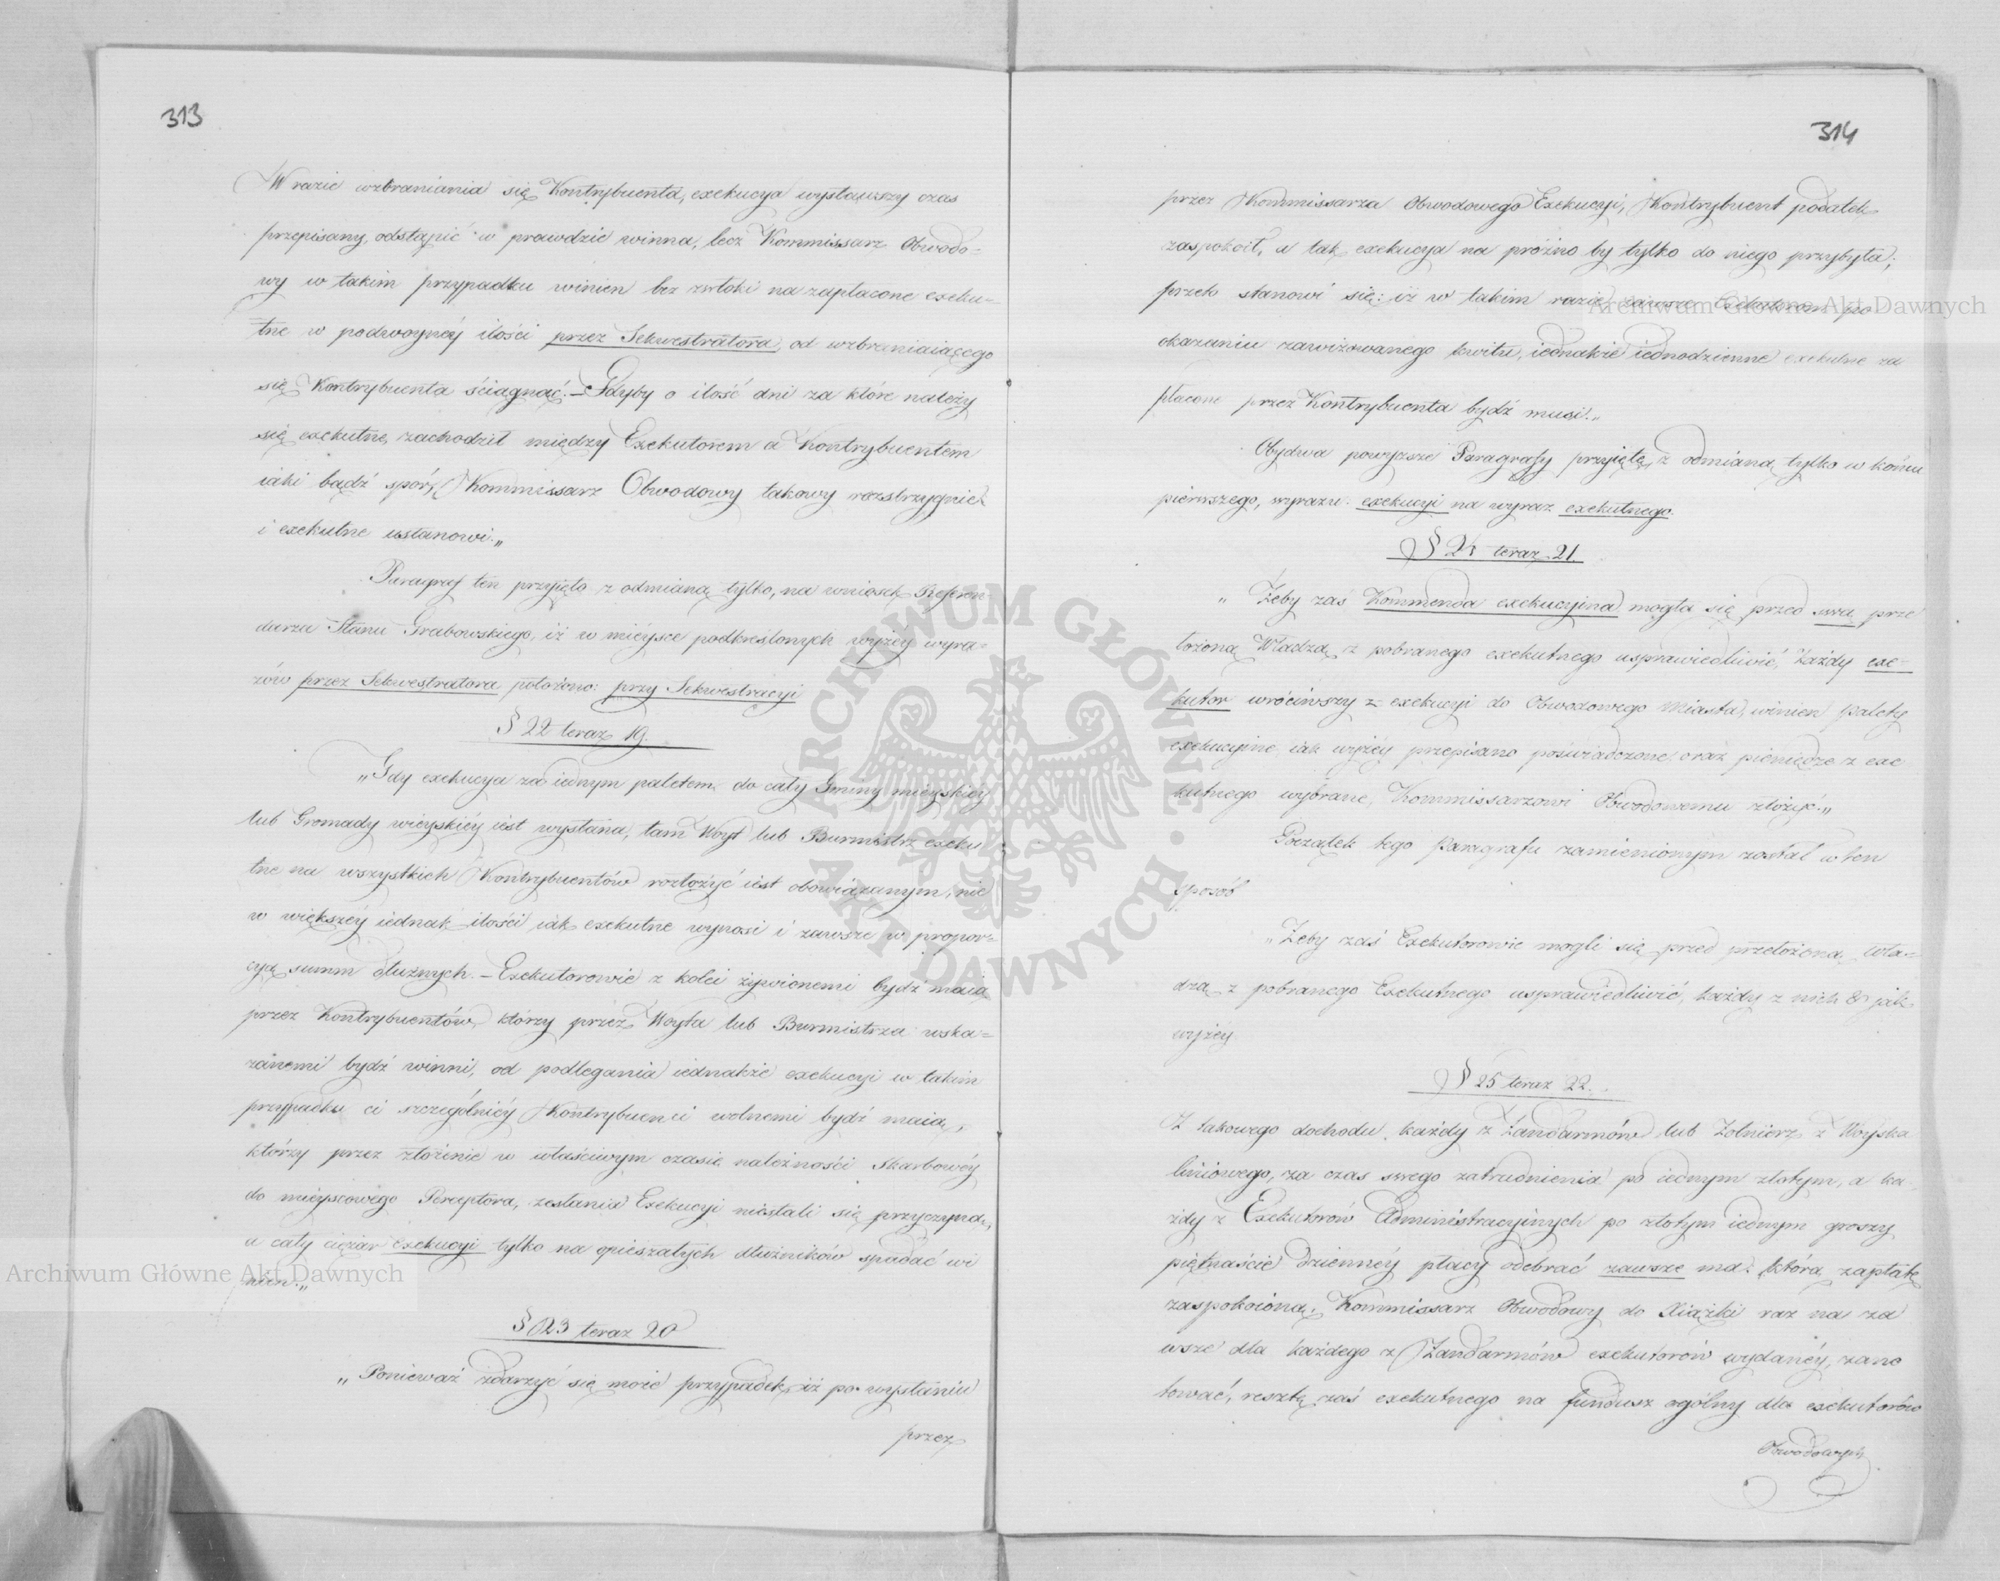 313
W razie wzbraniania się Kontrybuenta, exekucya wystawszy czas
przepisany, odstąpić w prawdzie winna, lecz Kommissarz Obwodo-
wy w takim przypadku winien bez zwłoki na zapłacone exeku-
tne w podwoynéy ilości przez Sekwestratora, od wzbraniaiącego
się Kontrybuenta ściągnąć. – Gdyby o ilość dni za które należy
się exekutne, zachodził między Exekutorem a Kontrybuentem
iaki bądź spór, Kommissarz Obwodowy takowy rozstrzygnie
i exekutne ustanowi.„
Paragraf ten przyięto z odmianą tylko, na wniosek Referen-
darza Stanu Grabowskiego, iż w mieysce podkreślonych wyżéy wyra-
zów przez Sekwestratora położono: przy Sekwestracyi
§ 22 teraz 19.
„Gdy exekucya za iednym paletem do cały Gminy mieyskiéy
lub Gromady wieyskiéy iest wysłana, tam Woyt lub Burmistrz exeku
tne na wszystkich Kontrybuentów rozłożyć iest obowiązanym, nie
w większéy iednak ilości iak exekutne wynosi i zawsze w propor-
cyą summ dłużnych. – Exekutorowie z kolei żywionemi bydź maią
przez Kontrybuentów, którzy przez Woyta lub Burmistrza wska-
zanemi bydź winni, od podlegania iednakże exekucyi w takim
przypadku ci szczególniéy Kontrybuenci wolnemi bydź maią,
którzy przez złożenie w właściwym czasie należności Skarbowéy
do mieyscowego Perceptora, zesłania Exekucyi niestali się przyczyną,
a cały ciężar exekucyi tylko na opieszałych dłużników spadać wi
nien.„
§ 23 teraz 20
„Ponieważ zdarzyć się może przypadek, iż po wysłaniu
przez
314
przez Kommissarza Obwodowego Exekucyi, Kontrybuent podatek
zaspokoił, a tak exekucya na próżno by tylko do niego przybyła;
przeto stanowi się: iż w takim razie zawsze Exekutorom po
okazaniu zawizowanego kwitu, iednakże iednodzienne exekutne za
płacone przez Kontrybuenta bydź musi.„
Obydwa powyższe Paragrafy przyięte, z odmianą tylko w końcu
pierwszego, wyrazu: exekucyi na wyraz exekutnego.
§ 24 teraz 21.
„Żeby zaś Kommenda exekucyina mogła się przed swą prze
łożoną Władzą z pobranego exekutnego usprawiedliwić, każdy exe-
kutor wróciwszy z exekucyi do Obwodowego Miasta, winien palety
exekucyine iak wyżéy przepisano poświadczone, oraz pieniądze z exe
kutnego wybrane, Kommissarzowi Obwodowemu złożyć.„
Początek tego Paragrafu zamienionym został w ten
sposób
„Żeby zaś Exekutorowie mogli się przed przełożoną Wła-
dzą z pobranego Exekutnego usprawiedliwić, każdy z nich & jak
wyżey
§ 25 teraz 22.
Z takowego dochodu, każdy z Żandarmów lub Żołnierz z Woyska
liniowego, za czas swego zatrudnienia po iednym złotym, a ka-
żdy z Exekutorów Administracyinych po złotym iednym groszy
piętnaście dziennéy płacy odebrać zawsze ma. którą zapłatę
zaspokoioną, Kommissarz Obwodowy do Xiążki raz na za
wsze dla każdego z Żandarmów exekutorów wydanéy, zano
tować, resztę zaś exekutnego na fundusz ogólny dla exekutorów
Obwodowych
Archiwum Główne Akt Dawnych
Archiwum Główne Akt Dawnych
ARCHIWUM GŁÓWNE AKT DAWNYCH